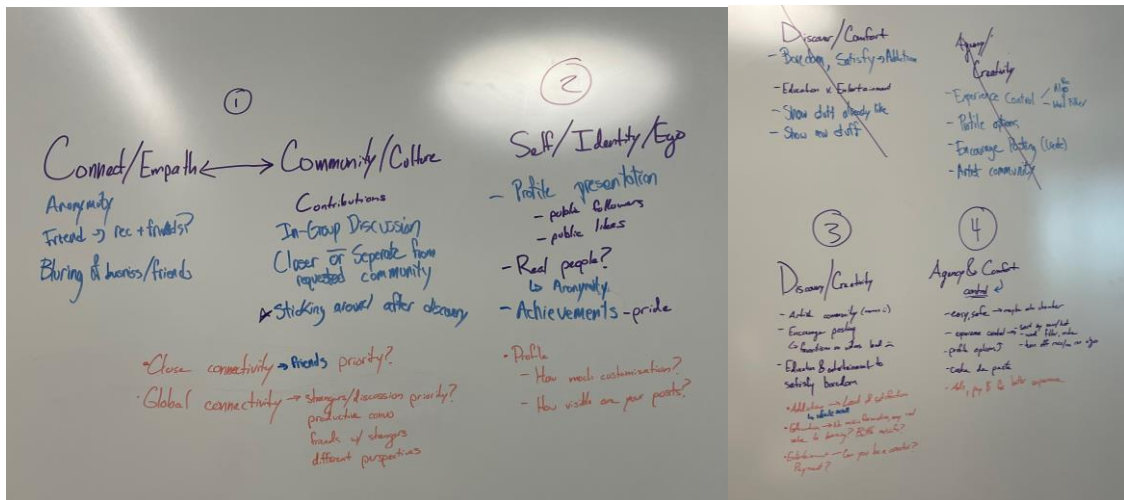 ①
Connect/Empath ↔ Community/Culture
Anonymity
Friend → rec + friends?
Bluring of
/friends
Contributions
In-Group Discussion
Closer or Seperate from
requested community
Sticking around after discovery
• Close connectivity → friends priority?
• Global connectivity → strangers/discussion priority?
productive convo
friends w/ strangers
different perspectives
②
Self/Identity/Ego
- Profile presentation
- public followers
- public likes
- Real people?
↳ Anonymity
- Achievements - pride
• Profile
- How much customization?
- How visible are your posts?
Discover/Comfort
- Boredom, Satisfy → Addiction
- Education x Entertainment
- Show stuff already like
- Show new stuff
Agency/
Creativity
- Experience Control
- Profile options
- Encourage Posting
- Artist community
③
Discovery/Creativity
- Artist community
- Encourage posting
- Education & entertainment to
satisfy boredom
• Addiction → Level of satisfaction
• Education →
• Entertainment - Can you be a creator?
Payment?
④
Agency & Comfort
control
- easy, safe →
- experience control
- profile options